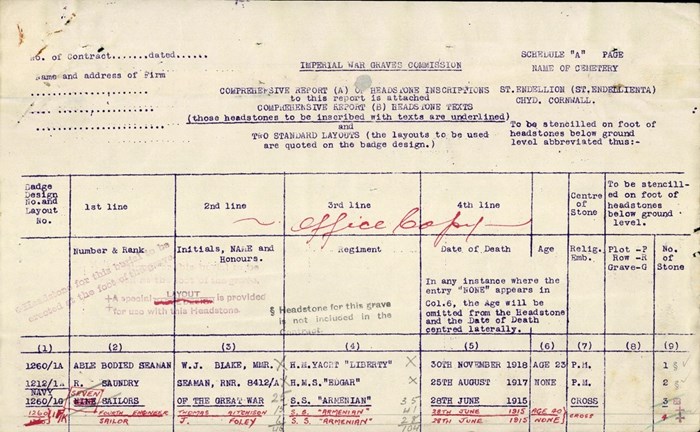 No. of Contract.......dated......
IMPERIAL WAR GRAVES COMMISSION
SCHEDULE "A" PAGE
Name and address of Firm
NAME OF CEMETERY
COMPREHENSIVE REPORT (A) OF HEADSTONE INSCRIPTIONS
ST.ENDELLION (ST.ENDELLIENTA)
to this report is attached
CHYD. CORNWALL.
COMPREHENSIVE REPORT (B) HEADSTONE TEXTS
(those headstones to be inscribed with texts are underlined)
and
To be stencilled on foot of
TWO STANDARD LAYOUTS (the layouts to be used
headstones below ground
are quoted on the badge design.)
level abbreviated thus:-
Badge Design No.and Layout No.
1st line
2nd line
3rd line
4th line
Centre of Stone
To be stencill-ed on foot of headstones below ground level.
Office Copy
Number & Rank
Initials, NAME and Honours.
Regiment
Date of Death
Age
Relig. Emb.
Plot -P Row -R Grave-G
No. of Stone
for this
at the foot of the grave.
‡A special LAYOUT is provided
for use with this Headstone.
§ Headstone for this grave
is not included in the
contract.
In any instance where the
entry "NONE" appears in
Col.6, the Age will be
omitted from the Headstone
and the Date of Death
centred laterally.
(1) (2) (3) (4) (5) (6) (7) (8) (9)
1260/1A ABLE BODIED SEAMAN W.J. BLAKE, MMR. X H.M.YACHT "LIBERTY" X 30TH NOVEMBER 1918 AGE 23 P.M. 1 §
1212/1A R. SAUNDRY SEAMAN, RNR. 8412/A X H.M.S. "EDGAR" X 25TH AUGUST 1917 NONE P.M. 2
NAVY SEVEN
1260/1G NINE SAILORS OF THE GREAT WAR S.S. "ARMENIAN" 35 28TH JUNE 1915 CROSS 3
FOURTH ENGINEER THOMAS AITCHISON S.S. "ARMENIAN" 41 28TH JUNE 1915 AGE 20 CROSS 4
SAILOR J. FOLEY S.S. "ARMENIAN" 28 28TH JUNE 1915 NONE
104